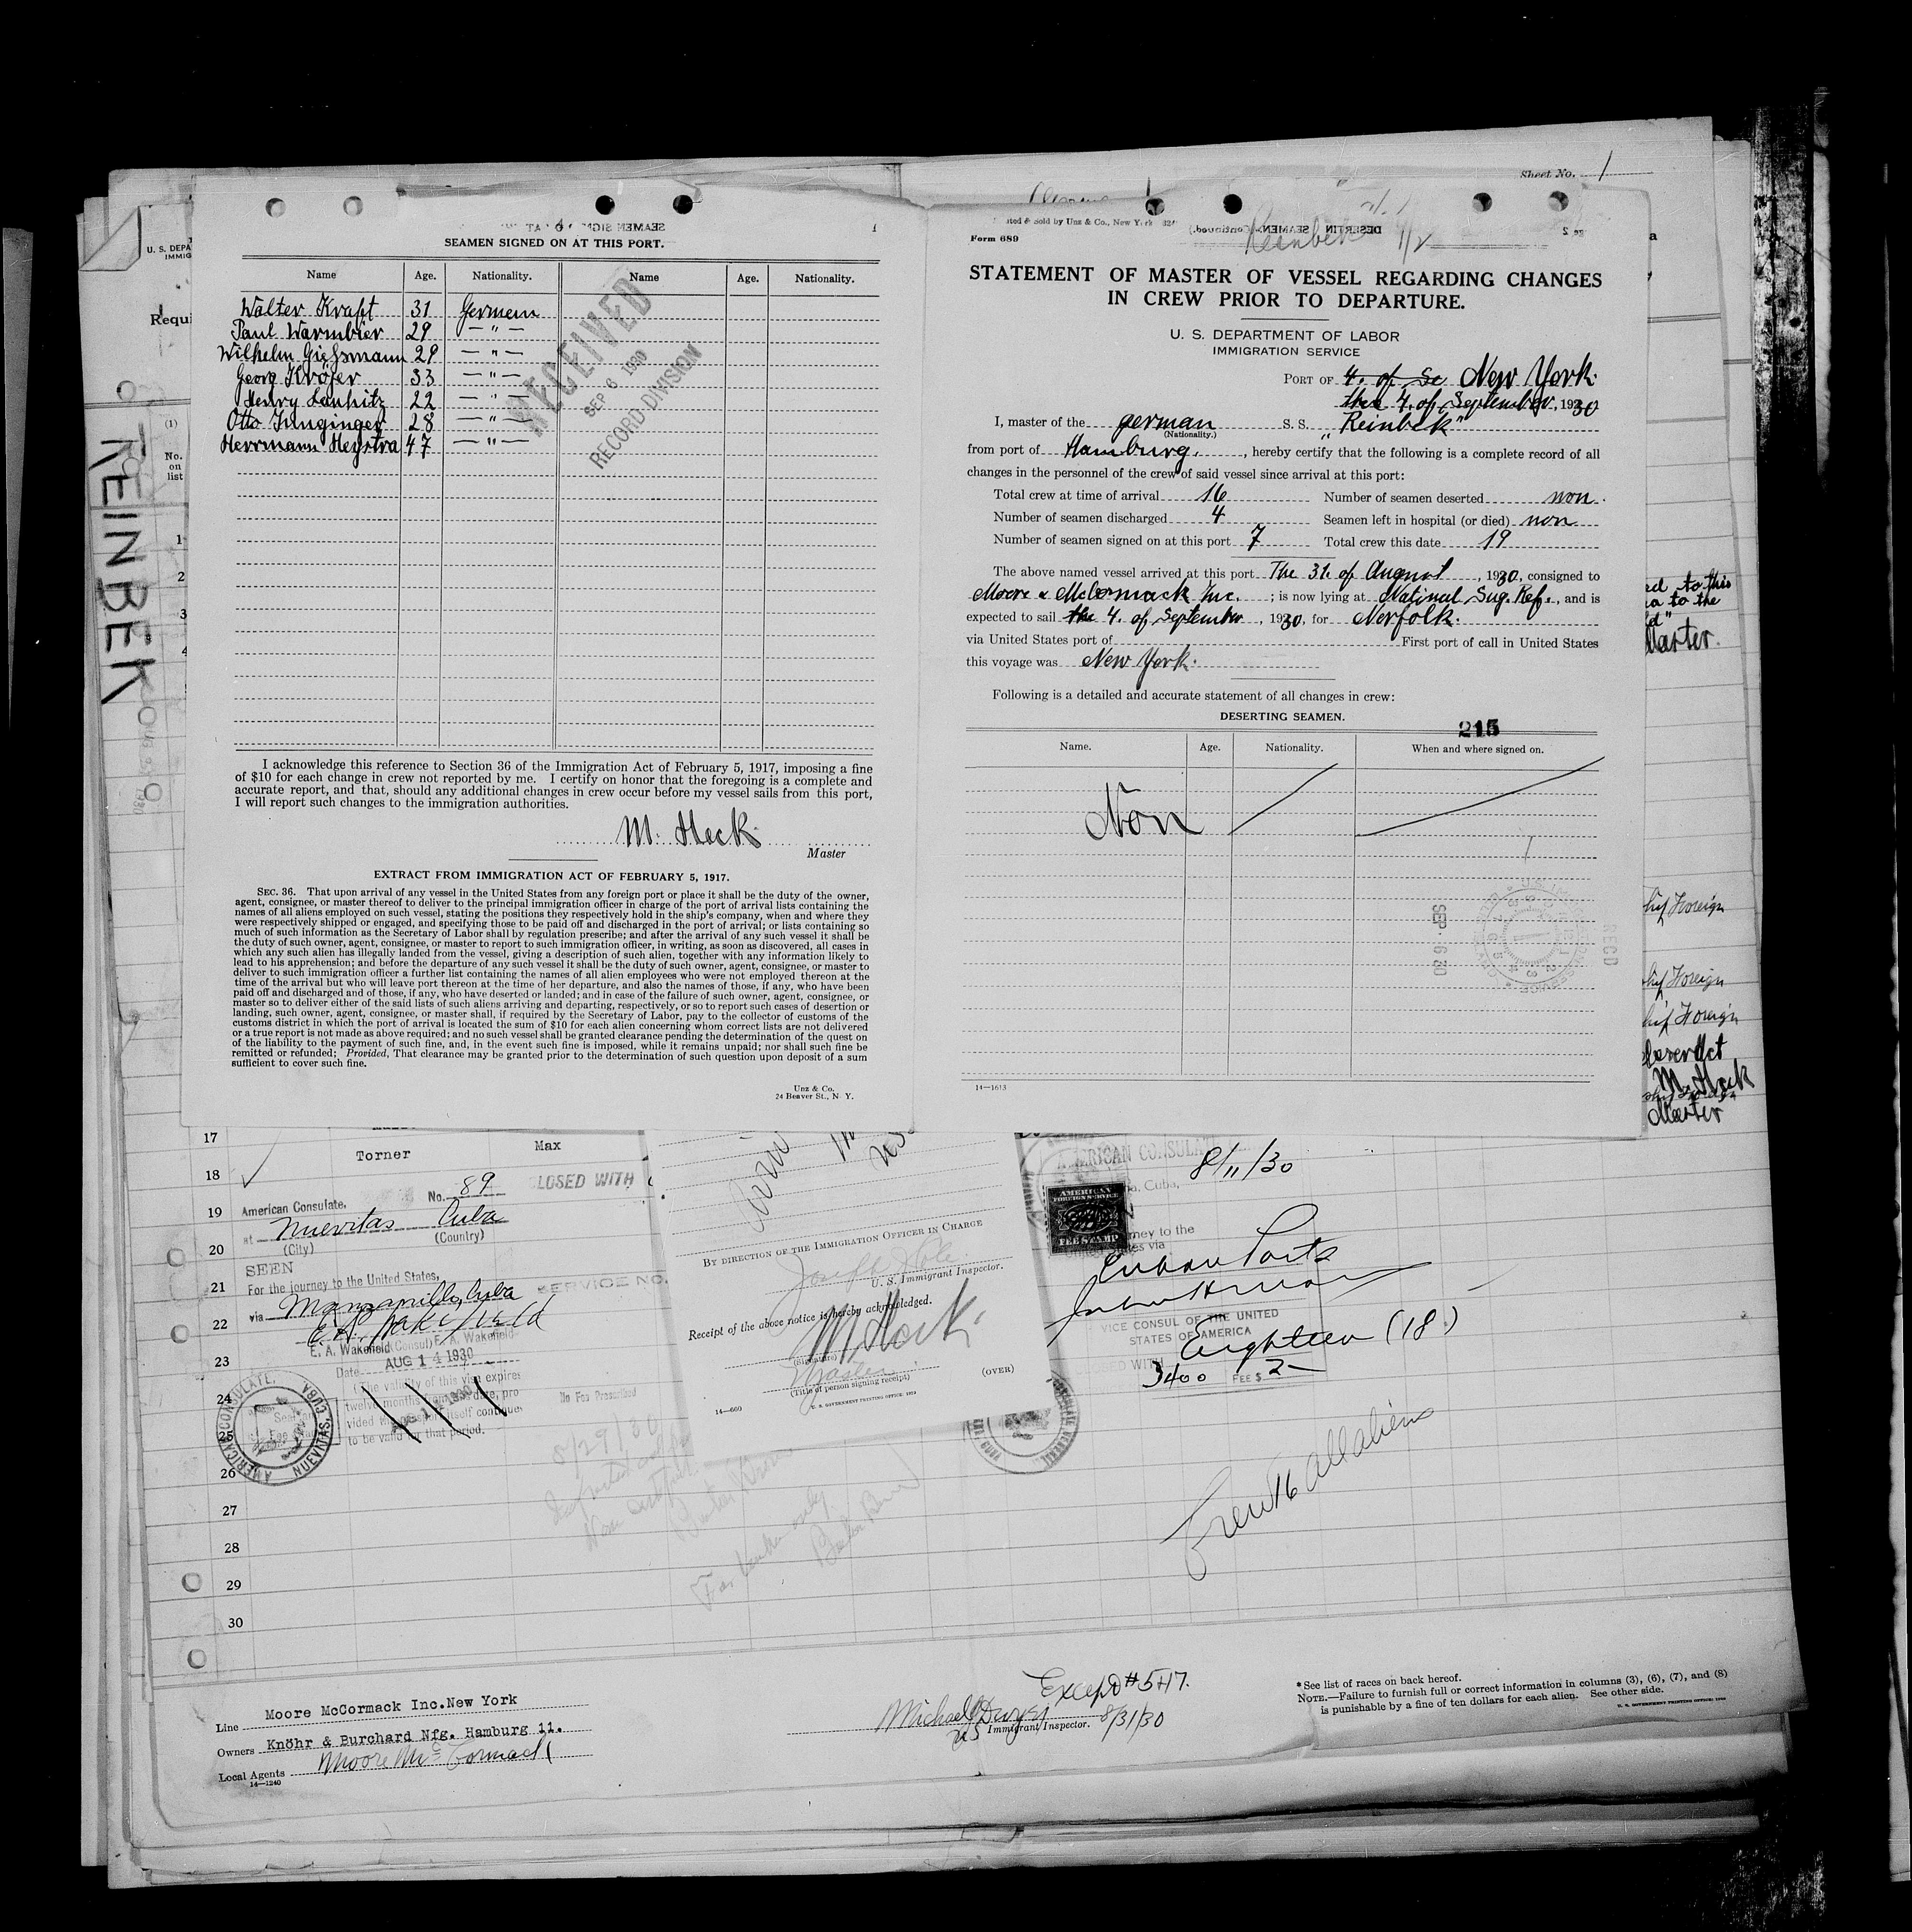 Sheet No. 1
SEAMEN SIGNED ON AT THIS PORT.
Name Age. Nationality. Name Age. Nationality.
Walter Kraft 31 German
Paul Warmbier 29 — " —
Wilhelm Gießmann 29 — " —
Georg Kröger 33 — " —
Henry 22 — " —
Otto Junginger 28 — " —
Herrmann Heystra 47 — " —
RECEIVED
SEP 6 1930
RECORD DIVISION
I acknowledge this reference to Section 36 of the Immigration Act of February 5, 1917, imposing a fine
of $10 for each change in crew not reported by me. I certify on honor that the foregoing is a complete and
accurate report, and that, should any additional changes in crew occur before my vessel sails from this port,
I will report such changes to the immigration authorities.
M. Heck
Master
EXTRACT FROM IMMIGRATION ACT OF FEBRUARY 5, 1917.
SEC. 36. That upon arrival of any vessel in the United States from any foreign port or place it shall be the duty of the owner,
agent, consignee, or master thereof to deliver to the principal immigration officer in charge of the port of arrival lists containing the
names of all aliens employed on such vessel, stating the positions they respectively hold in the ship's company, when and where they
were respectively shipped or engaged, and specifying those to be paid off and discharged in the port of arrival; or lists containing so
much of such information as the Secretary of Labor shall by regulation prescribe; and after the arrival of any such vessel it shall be
the duty of such owner, agent, consignee, or master to report to such immigration officer, in writing, as soon as discovered, all cases in
which any such alien has illegally landed from the vessel, giving a description of such alien, together with any information likely to
lead to his apprehension; and before the departure of any such vessel it shall be the duty of such owner, agent, consignee, or master to
deliver to such immigration officer a further list containing the names of all alien employees who were not employed thereon at the
time of the arrival but who will leave port thereon at the time of her departure, and also the names of those, if any, who have been
paid off and discharged and of those, if any, who have deserted or landed; and in case of the failure of such owner, agent, consignee, or
master so to deliver either of the said lists of such aliens arriving and departing, respectively, or so to report such cases of desertion or
landing, such owner, agent, consignee, or master shall, if required by the Secretary of Labor, pay to the collector of customs of the
customs district in which the port of arrival is located the sum of $10 for each alien concerning whom correct lists are not delivered
or a true report is not made as above required; and no such vessel shall be granted clearance pending the determination of the quest on
of the liability to the payment of such fine, and, in the event such fine is imposed, while it remains unpaid; nor shall such fine be
remitted or refunded; Provided, That clearance may be granted prior to the determination of such question upon deposit of a sum
sufficient to cover such fine.
Unz & Co.
24 Beaver St., N. Y.
sold by Unz & Co., New York
Form 689
Reinbek
STATEMENT OF MASTER OF VESSEL REGARDING CHANGES
IN CREW PRIOR TO DEPARTURE.
U. S. DEPARTMENT OF LABOR
IMMIGRATION SERVICE
PORT OF 4. of Se New York.
the 4. of September, 1930
I, master of the german S. S. „Reinbek"
(Nationality.)
from port of Hamburg., hereby certify that the following is a complete record of all
changes in the personnel of the crew of said vessel since arrival at this port:
Total crew at time of arrival 16 Number of seamen deserted non.
Number of seamen discharged 4 Seamen left in hospital (or died) non
Number of seamen signed on at this port 7 Total crew this date 19
The above named vessel arrived at this port The 31. of August, 1930, consigned to
Moore & McCormack Inc.; is now lying at National Sug. Ref., and is
expected to sail the 4. of September, 1930, for Norfolk.
via United States port of First port of call in United States
this voyage was New York.
Following is a detailed and accurate statement of all changes in crew:
DESERTING SEAMEN.
215
Name. Age. Nationality. When and where signed on.
Non
SEP. 6 30
REC'D
14—1613
REINBEK
U. S. DEPA
IMMIG
Requi
(1)
No.
on
list
1
2
3
4
ed to this
a to the
Master.
Foreign
Foreign
Foreign
M. Heck
Master
17
18 Torner Max
19
20
21
22
23
24
25
26
27
28
29
30
American Consulate, No. 89
at Nuevitas Cuba
(City) (Country)
SEEN
For the journey to the United States,
via Manzanillo, Cuba
E. A. Wakefield
E. A. Wakefield
Date AUG 14 1930
(The validity of this visa expires
twelve months from date, pro
vided the passport itself continues
to be valid for that period.
AMERICAN CONSULATE, NUEVITAS, CUBA
LOSED WITH
SERVICE NO.
No Fee Prescribed
8/29/30
BY DIRECTION OF THE IMMIGRATION OFFICER IN CHARGE
U. S. Immigrant Inspector.
Receipt of the above notice is hereby acknowledged.
M Heck
(Signature)
Master
(Title of person signing receipt)
(OVER)
14—660
U. S. GOVERNMENT PRINTING OFFICE: 1929
AMERICAN CONSULATE
8/11/30
Cuba,
AMERICAN
FOREIGN SERVICE
FEE STAMP
rney to the
tes via
Cuban Ports
VICE CONSUL OF THE UNITED
STATES OF AMERICA
Eighteen (18)
3400 FEE $ 2—
Crew 16 all aliens
Line Moore McCormack Inc.New York
Owners Knöhr & Burchard Nfg. Hamburg 11.
Local Agents Moore McCormack
14—1240
Except # 5+17.
Michael Dwyer
US Immigrant Inspector. 8/31/30
* See list of races on back hereof.
NOTE.—Failure to furnish full or correct information in columns (3), (6), (7), and (8)
is punishable by a fine of ten dollars for each alien. See other side.